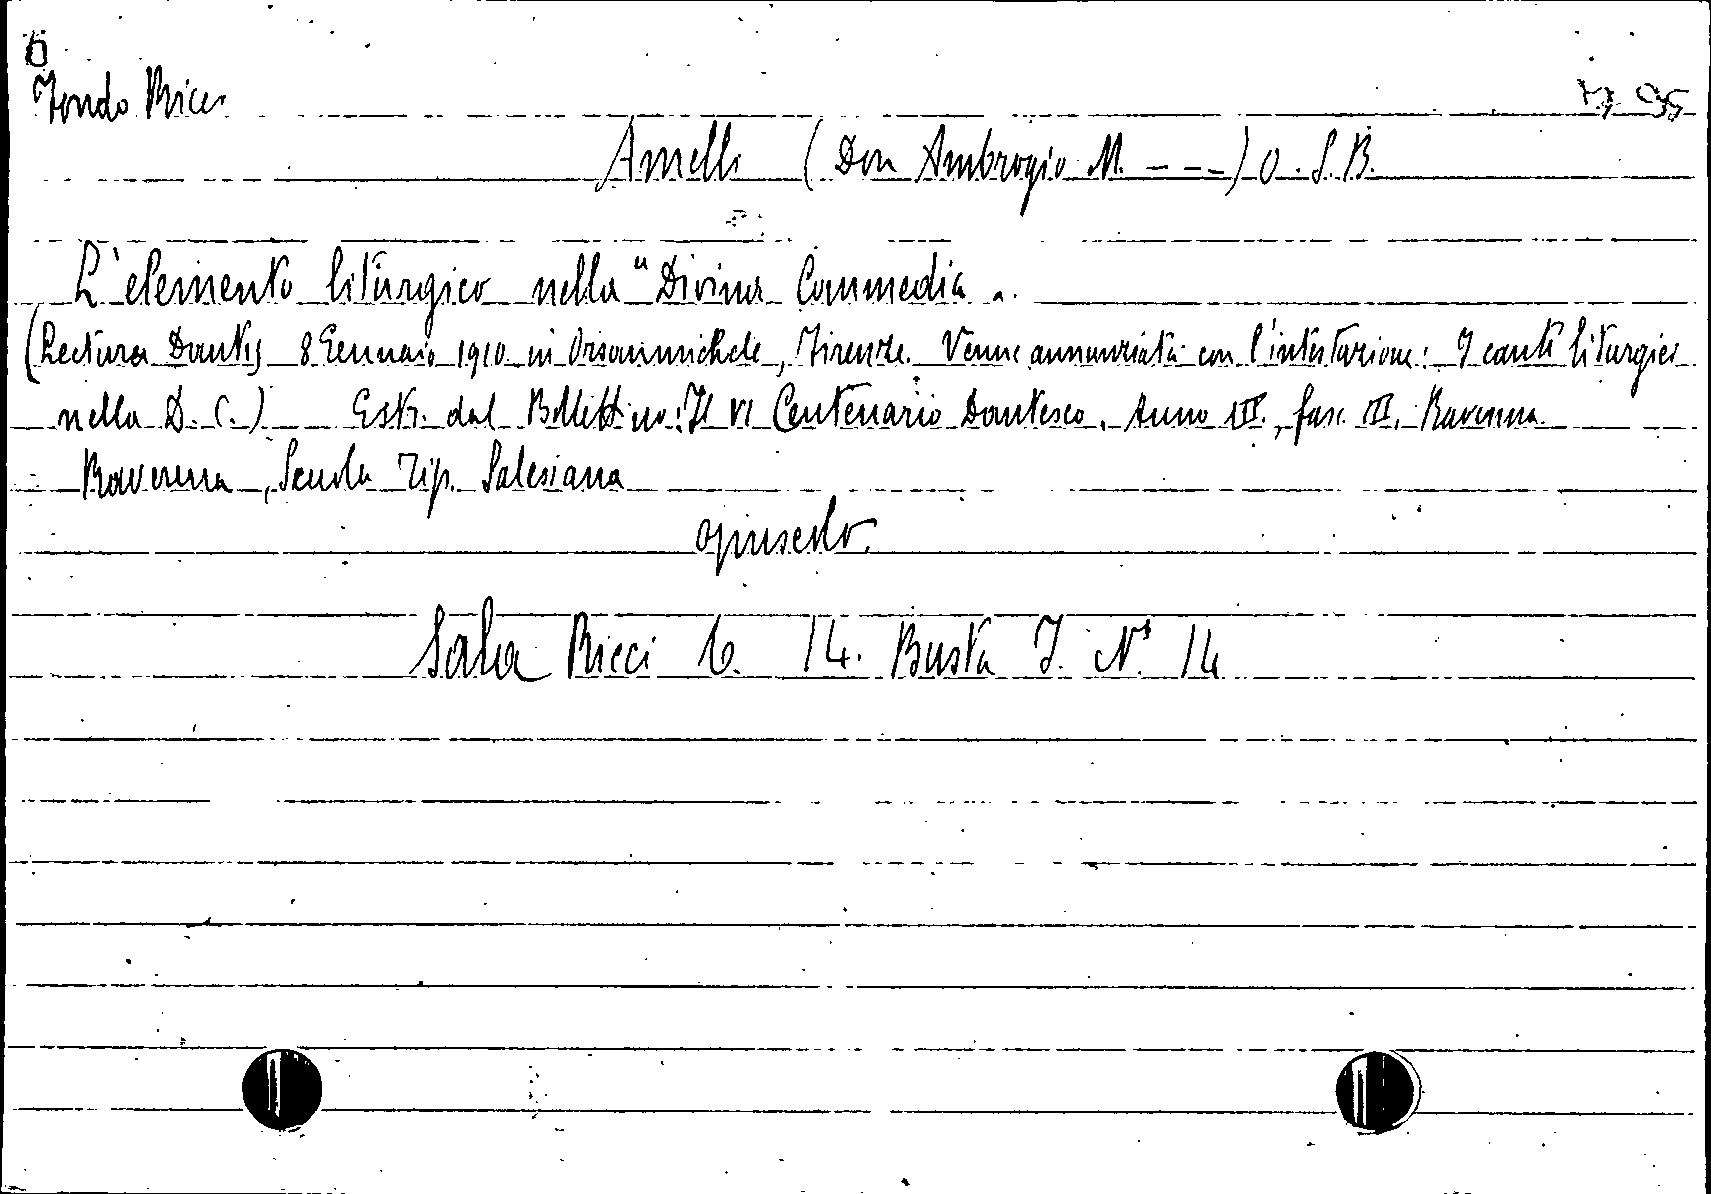 Fondo Ricci
Amelli (Don Ambrogio M. ---) O. S. B.
L'elemento liturgico nella "Divina Commedia".
(Lectura Dantis 8 Gennaio 1910 in Orsanmichele, Firenze. Venne annunziata con l'intestazione: I canti liturgici
nella D. C.) Estr. dal Bollettino: Il VI Centenario Dantesco. Anno III, fasc. III. Ravenna
Ravenna, Scuola Tip. Salesiana
opuscolo.
Sala Ricci 6. 14. Busta I. N° 14